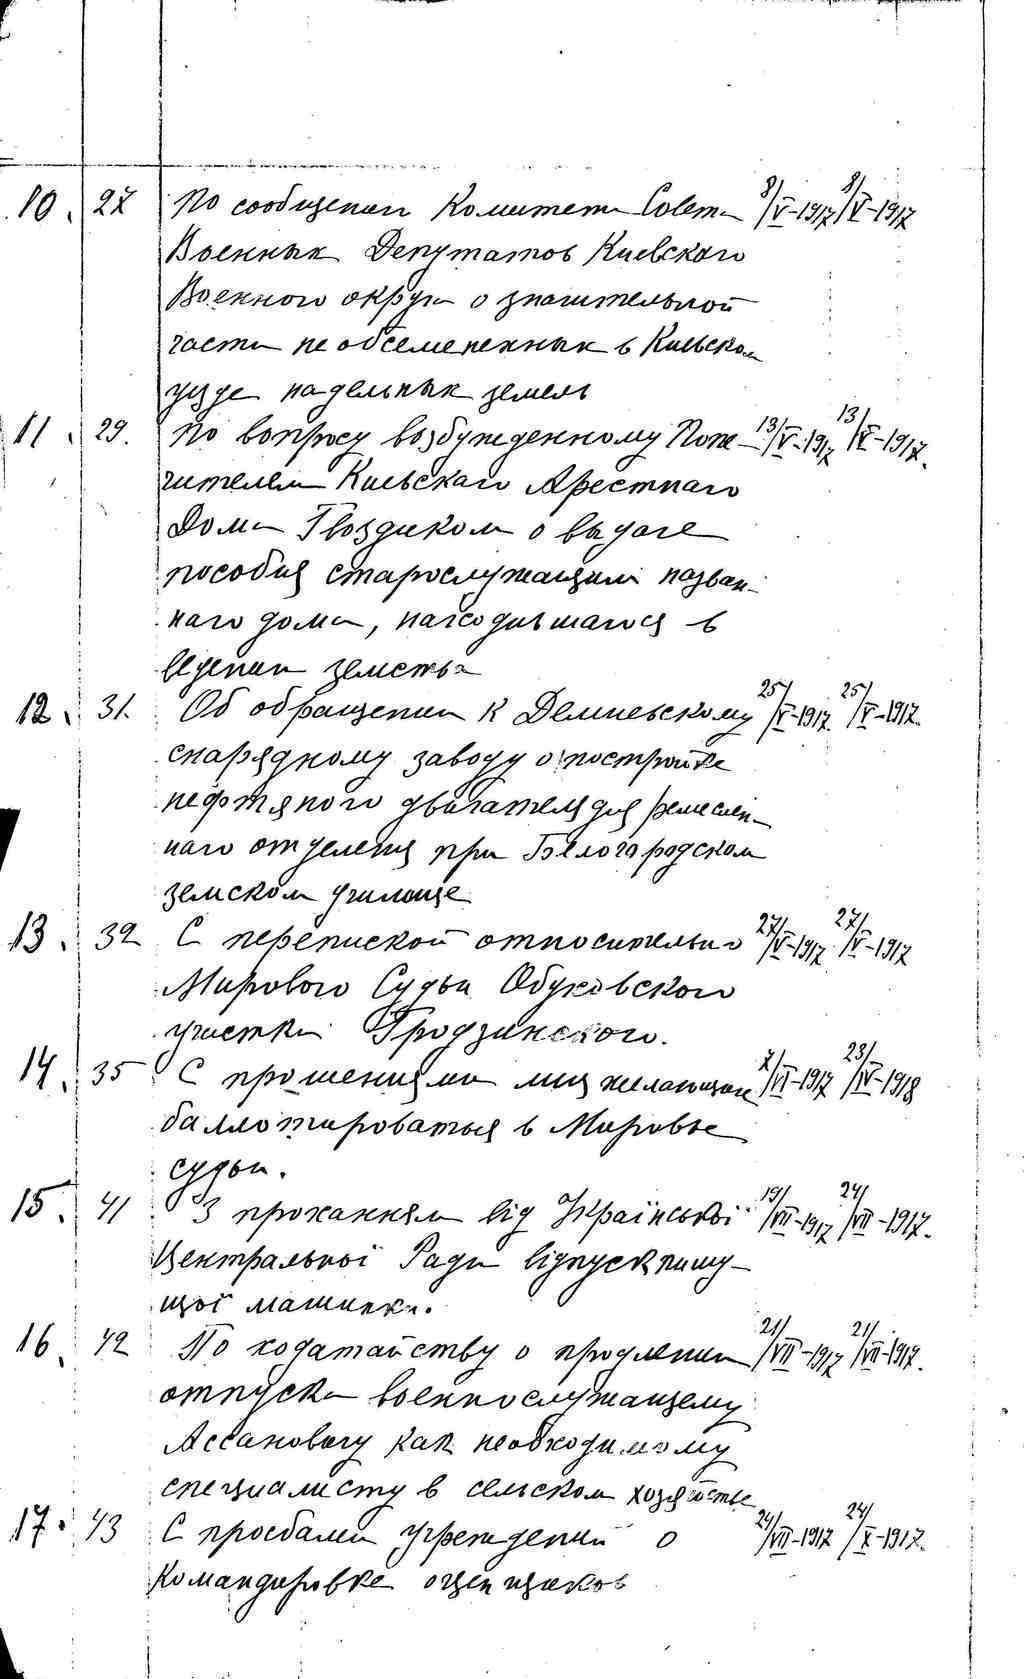 10. 27 По сообщении Комитета Совета 8/V-1917 8/V-1917
Военных Депутатов Киевского
Военного округа о значительной
части необсемененных в Киевском
уезде надельных земель
11. 29. По вопросу возбужденному Попе- 13/V-1917 13/V-1917.
чителем Киевскаго Арестнаго
Дома Гвоздиком о выдаче
пособия старослужащим назван-
наго дома, находившагося в
ведении земства
12. 31. Об обращении к Демиевскому 25/V-1917. 25/V-1917.
снарядному заводу о постройке
нефтяного двигателя для ремеслен-
наго отделения при Белогородском
земском училище
13. 32 С перепиской относительно 27/V-1917 27/V-1917
Мирового Судьи Обуховского
участка Гродзинского.
14. 35 С прошениями лиц желающих 7/VI-1917 23/IV-1918
баллотироваться в Мировые
судьи.
15. 41 З проханням від Української 19/VII-1917 24/VII-1917.
Центральної Ради відпуск пишу-
щої машинки.
16. 42 По ходатайству о продлении 21/VII-1917 21/VII-1917.
отпуска военнослужащему
Ассановичу как необходимому
специалисту в сельском хозяйстве
17. 43 С просьбами учреждений о 24/VII-1917 24/X-1917.
командировке оценщиков